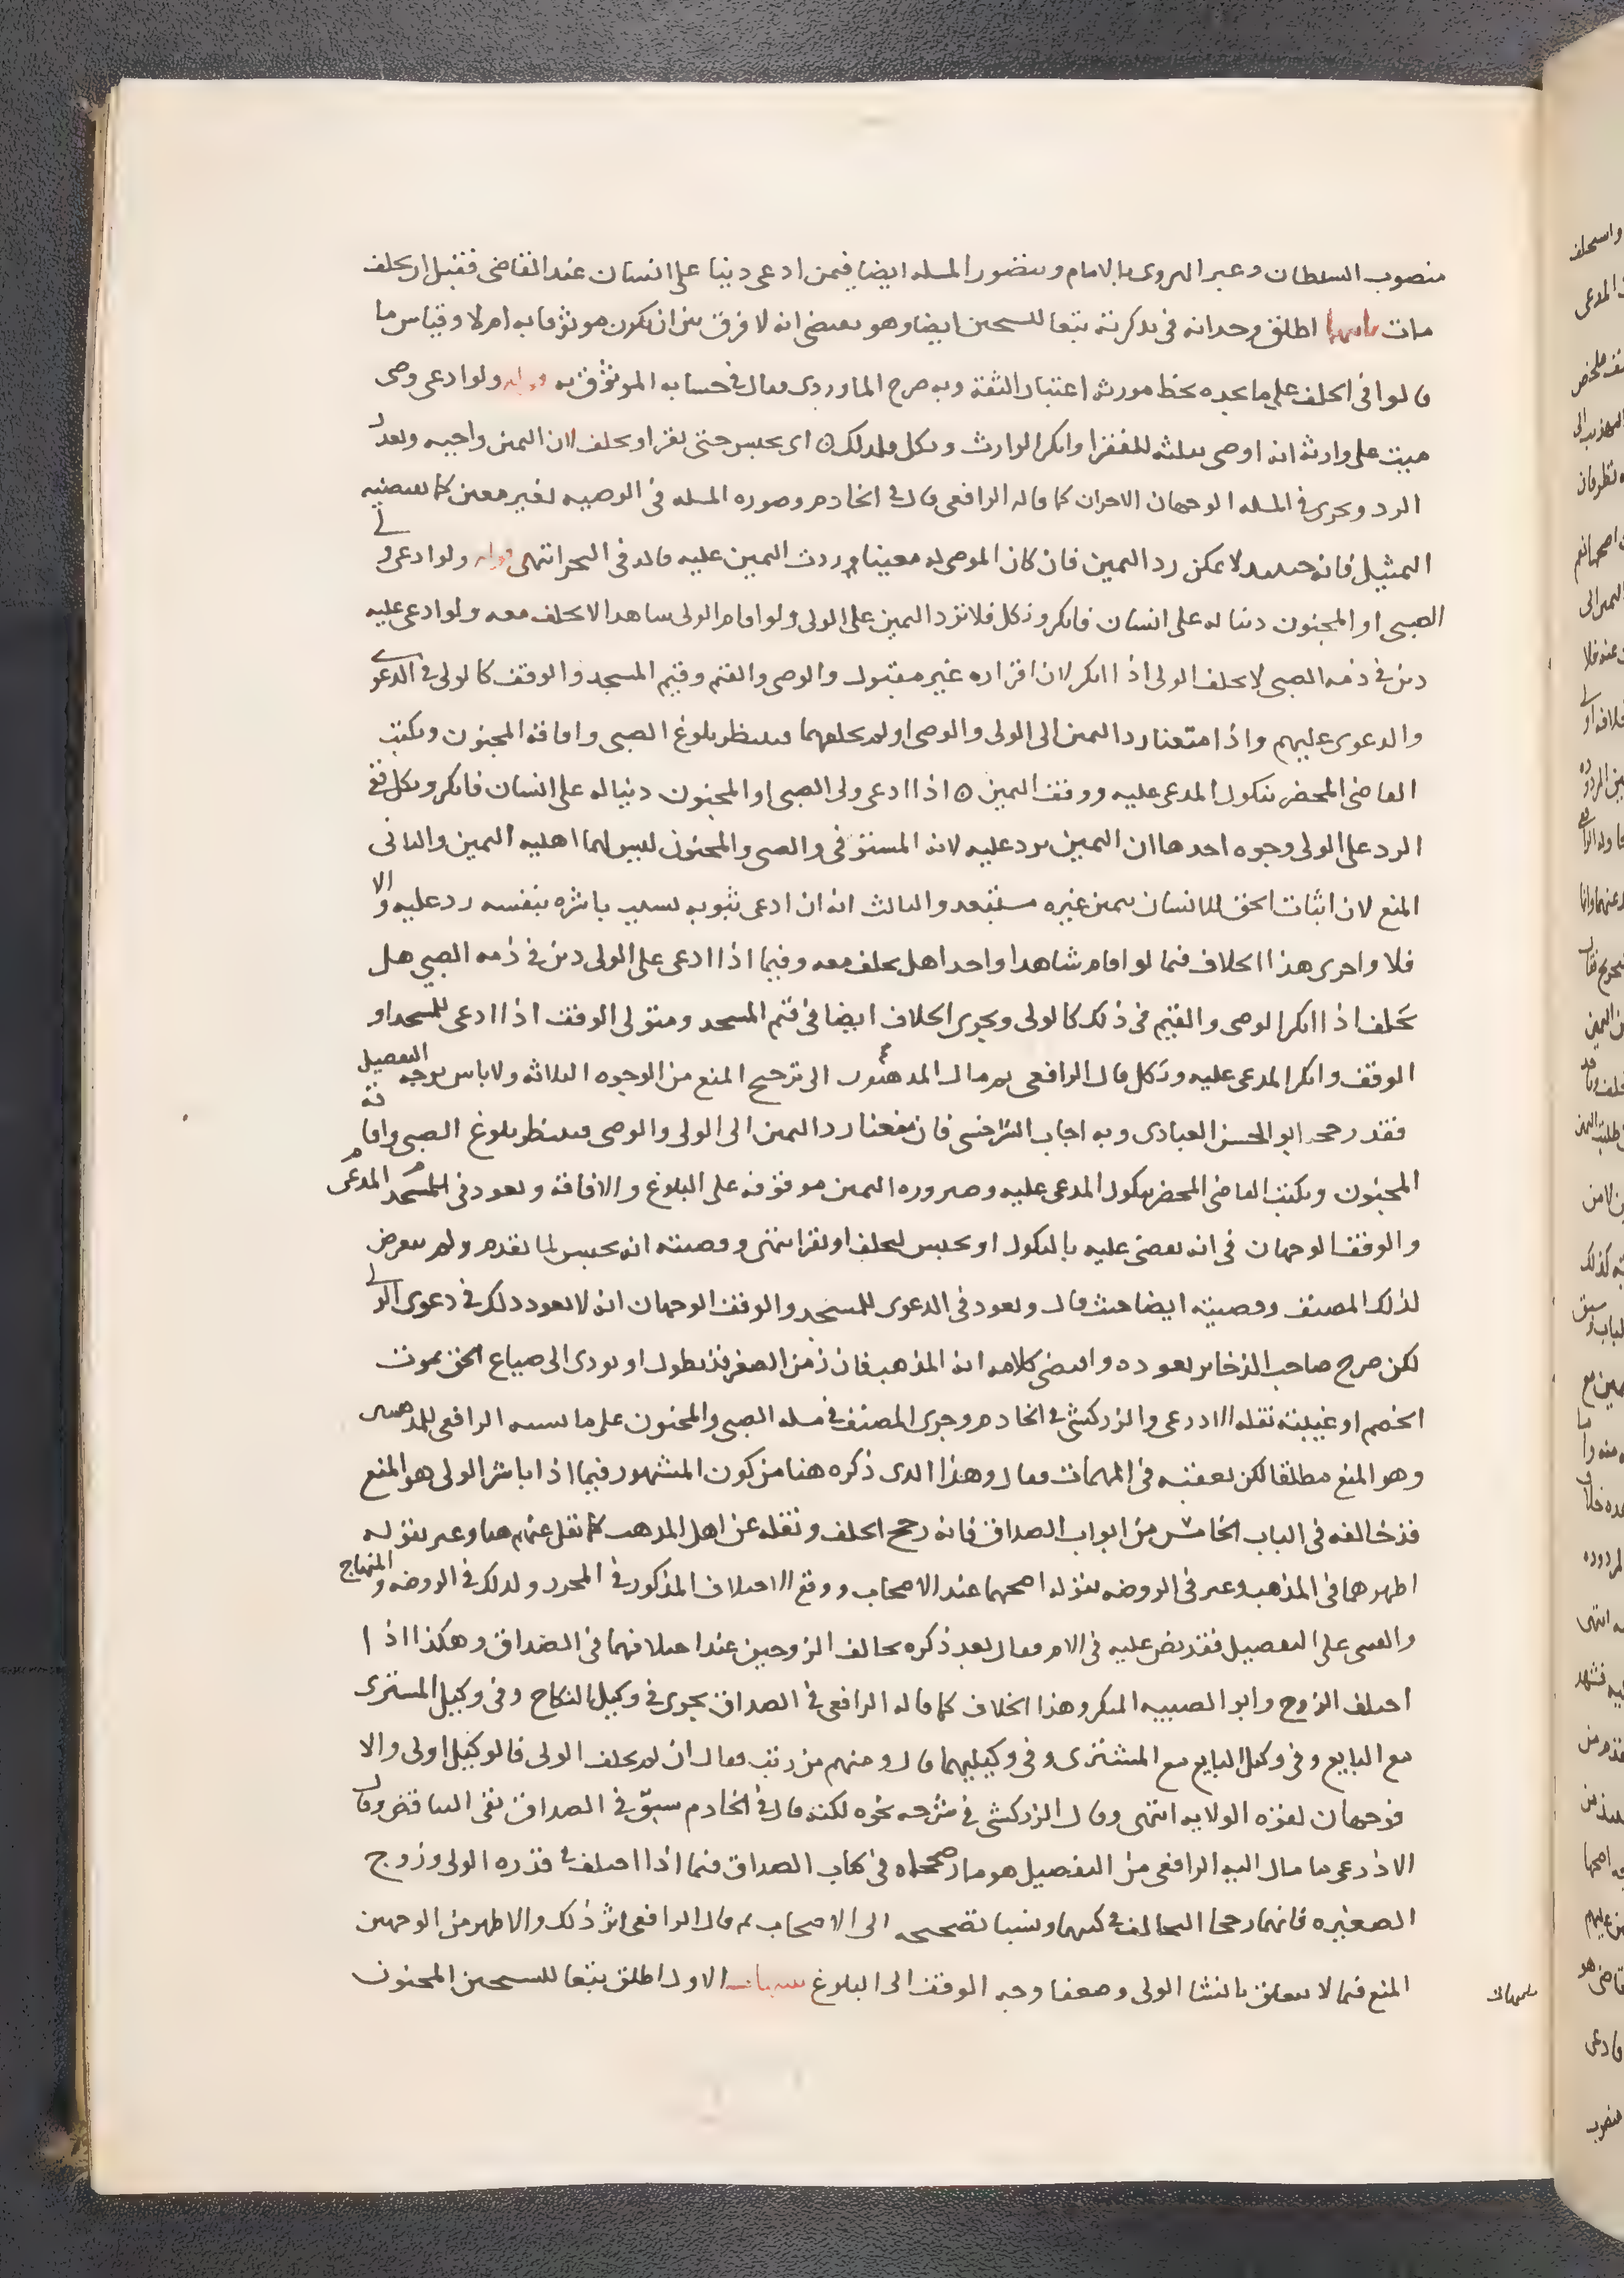 منصوب السلطان وعبر الهروى بالامام ويتصور المسله ايضا فيمن ادعى دينا على انسان عند القاضى فقبل ان يحلف
مات اطلق وجدانه فى تذكرته تبعا للشيخين ايضا وهو يقتضى انه لا فرق بين ان يكون موثوقا به ام لا وقياس ما
قالوا فى الحلف على ما يجده بخط مورثه اعتبار الثقة وبه صرح الماوردى فقال فى حسابه الموثوق به قوله ولو ادعى وصى
ميت على وارثه انه اوصى بثلثه للفقرا وانكر الوارث ونكل فكذلك ای يحبس حتى يقر او يحلف لان اليمين واجبه وتعذر
الرد ويجرى فى المسله الوجهان الاخران كما قاله الرافعى قال فى الخادم وصوره المسله فى الوصيه لغير معين كما يقتضيه
التمثيل فانه حينئذ لا يمكن رد اليمين فان كان الموصى له معينا ردت اليمين عليه قاله فى البحر انتهى قوله ولو ادعى ولى
الصبى او المجنون دينا له على انسان فانكر ونكل فلا ترد اليمين على الولى ولو اقام الولى شاهدا لا يحلف معه ولو ادعى عليه
دين فى ذمه الصبى لا يحلف الولى اذا انكر لان اقراره غير مقبول والوصى والقيم وقيم المسجد والوقف كالولى فى الدعوى
والدعوى عليهم واذا منعنا رد اليمين الى الولى والوصى او لم نحلفهما فينتظر بلوغ الصبى وافاقة المجنون ويكتب
القاضى المحضر بنكول المدعى عليه ووقف اليمين ه اذا ادعى ولى الصبى او المجنون دينا له على انسان فانكر ونكل ففى
الرد على الولى وجوه احدها ان اليمين يرد عليه لانه المستوفى والصبى والمجنون ليس لهما اهليه اليمين والثانى
المنع لان اثبات الحق للانسان بيمين غيره مستبعد والثالث انه ان ادعى ثبوته بسبب باشره بنفسه رد عليه والا
فلا واجرى هذا الخلاف فيما لو اقام شاهدا واحدا هل يحلف معه وفيما اذا ادعى على الولى دين فى ذمه الصبي هل
يحلف اذا انكر الوصى والقيم فى ذلك كالولى ويجرى الخلاف ايضا فى قيم المسجد ومتولى الوقف اذا ادعى للمسجد او
الوقف وانكر المدعى عليه ونكل قال الرافعى ثم مال المذهبيون الى ترجيح المنع من الوجوه الثلاثه ولا باس بوجه التفصيل
فقد رجحه ابو الحسن العبادى وبه اجاب السرخسى فان منعنا رد اليمين الى الولى والوصى فينتظر بلوغ الصبى وافاقة
المجنون ويكتب القاضى المحضر بنكول المدعى عليه وصيروره اليمين موقوفه على البلوغ والافاقه ويعود فى المسجد المدعى
والوقف الوجهان فى انه يقضى عليه بالنكول او يحبس ليحلف او يقر انتهى وقضيته انه يحبس لما تقدم ولم يتعرض
لذلك المصنف وقضيته ايضا حيث قال ويعود فى الدعوى للمسجد والوقف الوجهان انه لا يعود ذلك فى دعوى الولى
لكن صرح صاحب الذخاير بعوده واقتضى كلامه انه المذهب فان زمن الصغر قد يطول او يودى الى ضياع الحق بموت
الخصم او غيبته نقله الاذرعى والزركشى فى الخادم وجرى المصنف فى مسله الصبى والمجنون على ما نسبه الرافعى للمذهبيين
وهو المنع مطلقا لكن تعقبه فى المهمات فقال وهذا الذى ذكره هنا من كون المشهور فيما اذا باشر الولى هو المنع
قد خالفه فى الباب الخامس من ابواب الصداق فانه رجح الحلف ونقله عن اهل المذهب كما نقل عنهم هنا وعبر بقوله
اظهرهما فى المذهب وعبر فى الروضه بقوله اصحهما عند الاصحاب ووقع الاختلاف المذكور فى المحرر وكذلك فى الروضه والمنهاج
والفتوى على التفصيل فقد نص عليه فى الام فقال بعد ذكره تحالف الزوجين عند اختلافهما فى الصداق وهكذا اذا
اختلف الزوج وابو الصبيه البكر وهذا الخلاف كما قاله الرافعى فى الصداق يجرى فى وكيل النكاح وفى وكيل المشترى
مع البايع وفى وكيل البايع مع المشترى وفى وكيليهما قال ومنهم من رتب فقال ان لم يحلف الولى فالوكيل اولى والا
فوجهان لقوه الولايه انتهى وقال الزركشى فى شرحه نحوه لكنه قال فى الخادم سبق فى الصداق نفى التناقض وقال
الاذرعى ما مال اليه الرافعى من التفصيل هو ما رجحاه فى كتاب الصداق فيما اذا اختلف فى قدره الولى وزوج
الصغيره فانهما رجحا التحالف فى كتبهما ونسبا تصحيحه الى الاصحاب ثم قال الرافعى اثر ذلك والاظهر من الوجهين
المنع فيما لا يتعلق بانشا الولى وضعفا وجه الوقف الى البلوغ تنبيهات الاول اطلق تبعا للشيخين المجنون